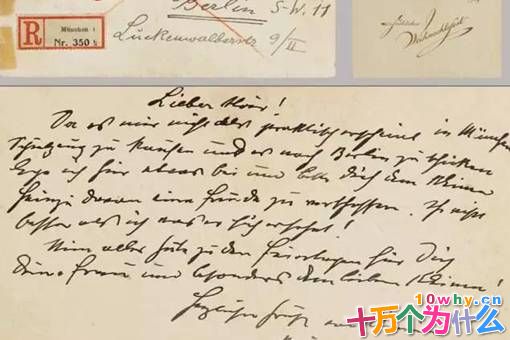 Berlin S.W. 11
R
München 1
Nr. 350
Luckenwalderstr. 9/II
Weihnachtsfest
Lieber
Da es mir nicht praktisch erscheint in München
zu kaufen und es nach Berlin zu schicken
lege ich hier etwas bei und bitte Dich dem kleinen
davon eine Freude zu verschaffen. Ihr wißt
besser als ich was er sich ersehnt!
Nun alles Gute zu den Feiertagen für Dich
Deine Frau und besonders dem lieben Kleinen!
Herzliche Grüße
10why.cn
十万个为什么